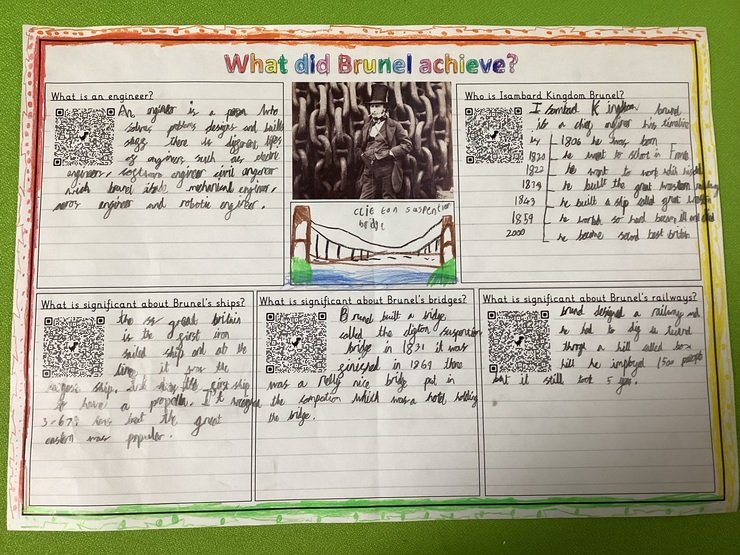 What did Brunel achieve?
What is an engineer?
An engineer is a person who
solves problems designs and builds
things there is different types
of engineers such as electric
engineer, software engineer civil engineer
which brunel is mechanical engineer,
aeros engineer and robotic engineer.
Clifton suspention
bridge
Who is Isambard Kingdom Brunel?
Isambard Kingdom brunel
is a civil engineer his timeline
is 1806 he was born
1820 he went to school in
1822 he went to work with his
1839 he built the great western railway
1843 he built a ship called great
1859 he worked so hard became ill and died
2000 he become second best british
What is significant about Brunel's ships?
the ss great britain
is the first iron
sailed ship and at the
time it was the
ship. its first ship
to have a propeller. It
3,675 tons but the great
eastern was popular.
What is significant about Brunel's bridges?
Brunel built a bridge
called the clifton suspention
bridge in 1831 it was
finished in 1864 there
was a really nice bridge put in
the compation which was a hotel holding
the bridge.
What is significant about Brunel's railways?
brunel designed a railway and
he had to dig a tunnel
through a hill called box
hill he employed 1500 people
but it still took 5 years.